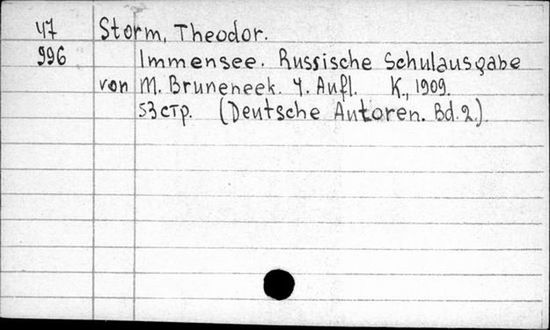 47 Storm, Theodor.
996 Immensee. Russische Schulausgabe
von M. Bruneneek. 4. Aufl. K., 1909.
53 стр. (Deutsche Autoren. Bd. 2.).